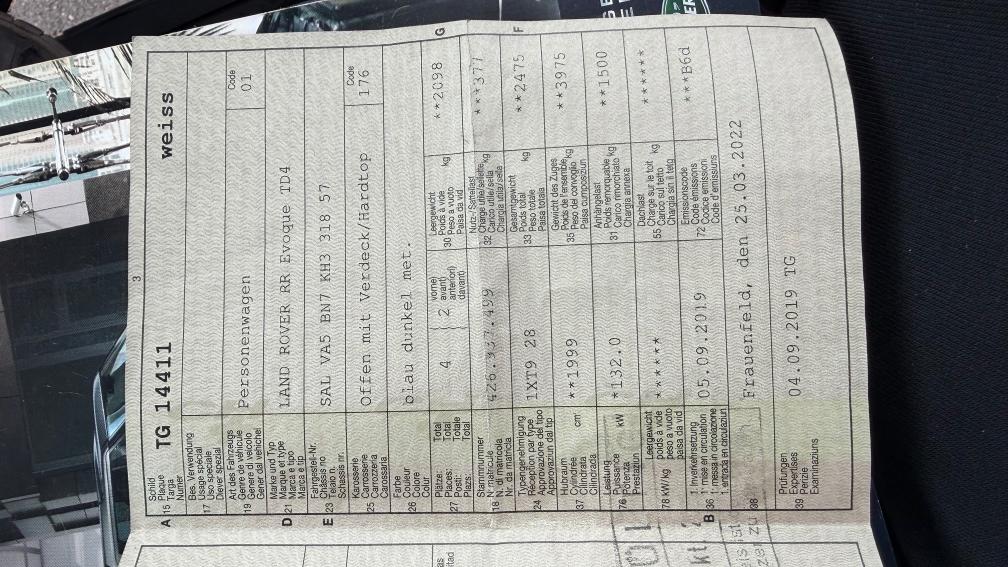 3
A 15 Schild
Plaque
Targa
Numer
TG 14411 weiss
17 Bes. Verwendung
Usage spécial
Uso speciale
Diever spezial
19 Art des Fahrzeugs
Genre de véhicule
Genere di veicolo
Gener dal vehichel
Personenwagen
Code
01
D 21 Marke und Typ
Marque et type
Marca e tipo
Marca e tip
LAND ROVER RR Evoque TD4
E 23 Fahrgestell-Nr.
Châssis no
Telaio n.
Schassis nr.
SAL VA5 BN7 KH3 318 57
25 Karosserie
Carrosserie
Carrozzeria
Carossaria
Offen mit Verdeck/Hardtop
Code
176
26 Farbe
Couleur
Colore
Colur
blau dunkel met.
27 Plätze: Total
Places: Total
Posti: Totale
Plazs: Total
4
2
vorne)
avant)
anteriori)
davant)
G
30 Leergewicht
Poids à vide
Peso a vuoto
Paisa da vid
kg
**2098
18 Stammnummer
N° matricule
Nr. di matricola
Nr. da matricla
32 Nutz-/Sattellast
Charge utile/sellette
Carico utile/sella
Chargia utila/sella
kg
***377
24 Typengenehmigung
Réception par type
Approvazione del tipo
Appruvaziun dal tip
1XT9 28
F
33 Gesamtgewicht
Poids total
Peso totale
Paisa totala
kg
**2475
37 Hubraum
Cylindrée
Cilindrata
Cilindrada
cm
**1999
35 Gewicht des Zuges
Poids de l'ensemble
Peso del convoglio
Paisa cumposiziun
kg
**3975
76 Leistung
Puissance
Potenza
Prestaziun
kW
*132.0
31 Anhängelast
Poids remorquable
Carico rimorchiato
Chargia annexa
kg
**1500
78 kW/kg
Leergewicht
poids à vide
peso a vuoto
paisa da vid
******
55 Dachlast
Charge sur le toit
Carico sul tetto
Chargia sin il tetg
kg
******
B 36 1. Inverkehrsetzung
1. mise en circulation
1. messa in circolazione
1. entrada en circulaziun
05.09.2019
72 Emissionscode
Code émissions
Codice emissioni
Code d'emissiuns
***B6d
38
Frauenfeld, den 25.03.2022
39 Prüfungen
Expertises
Perizie
Examinaziuns
04.09.2019 TG